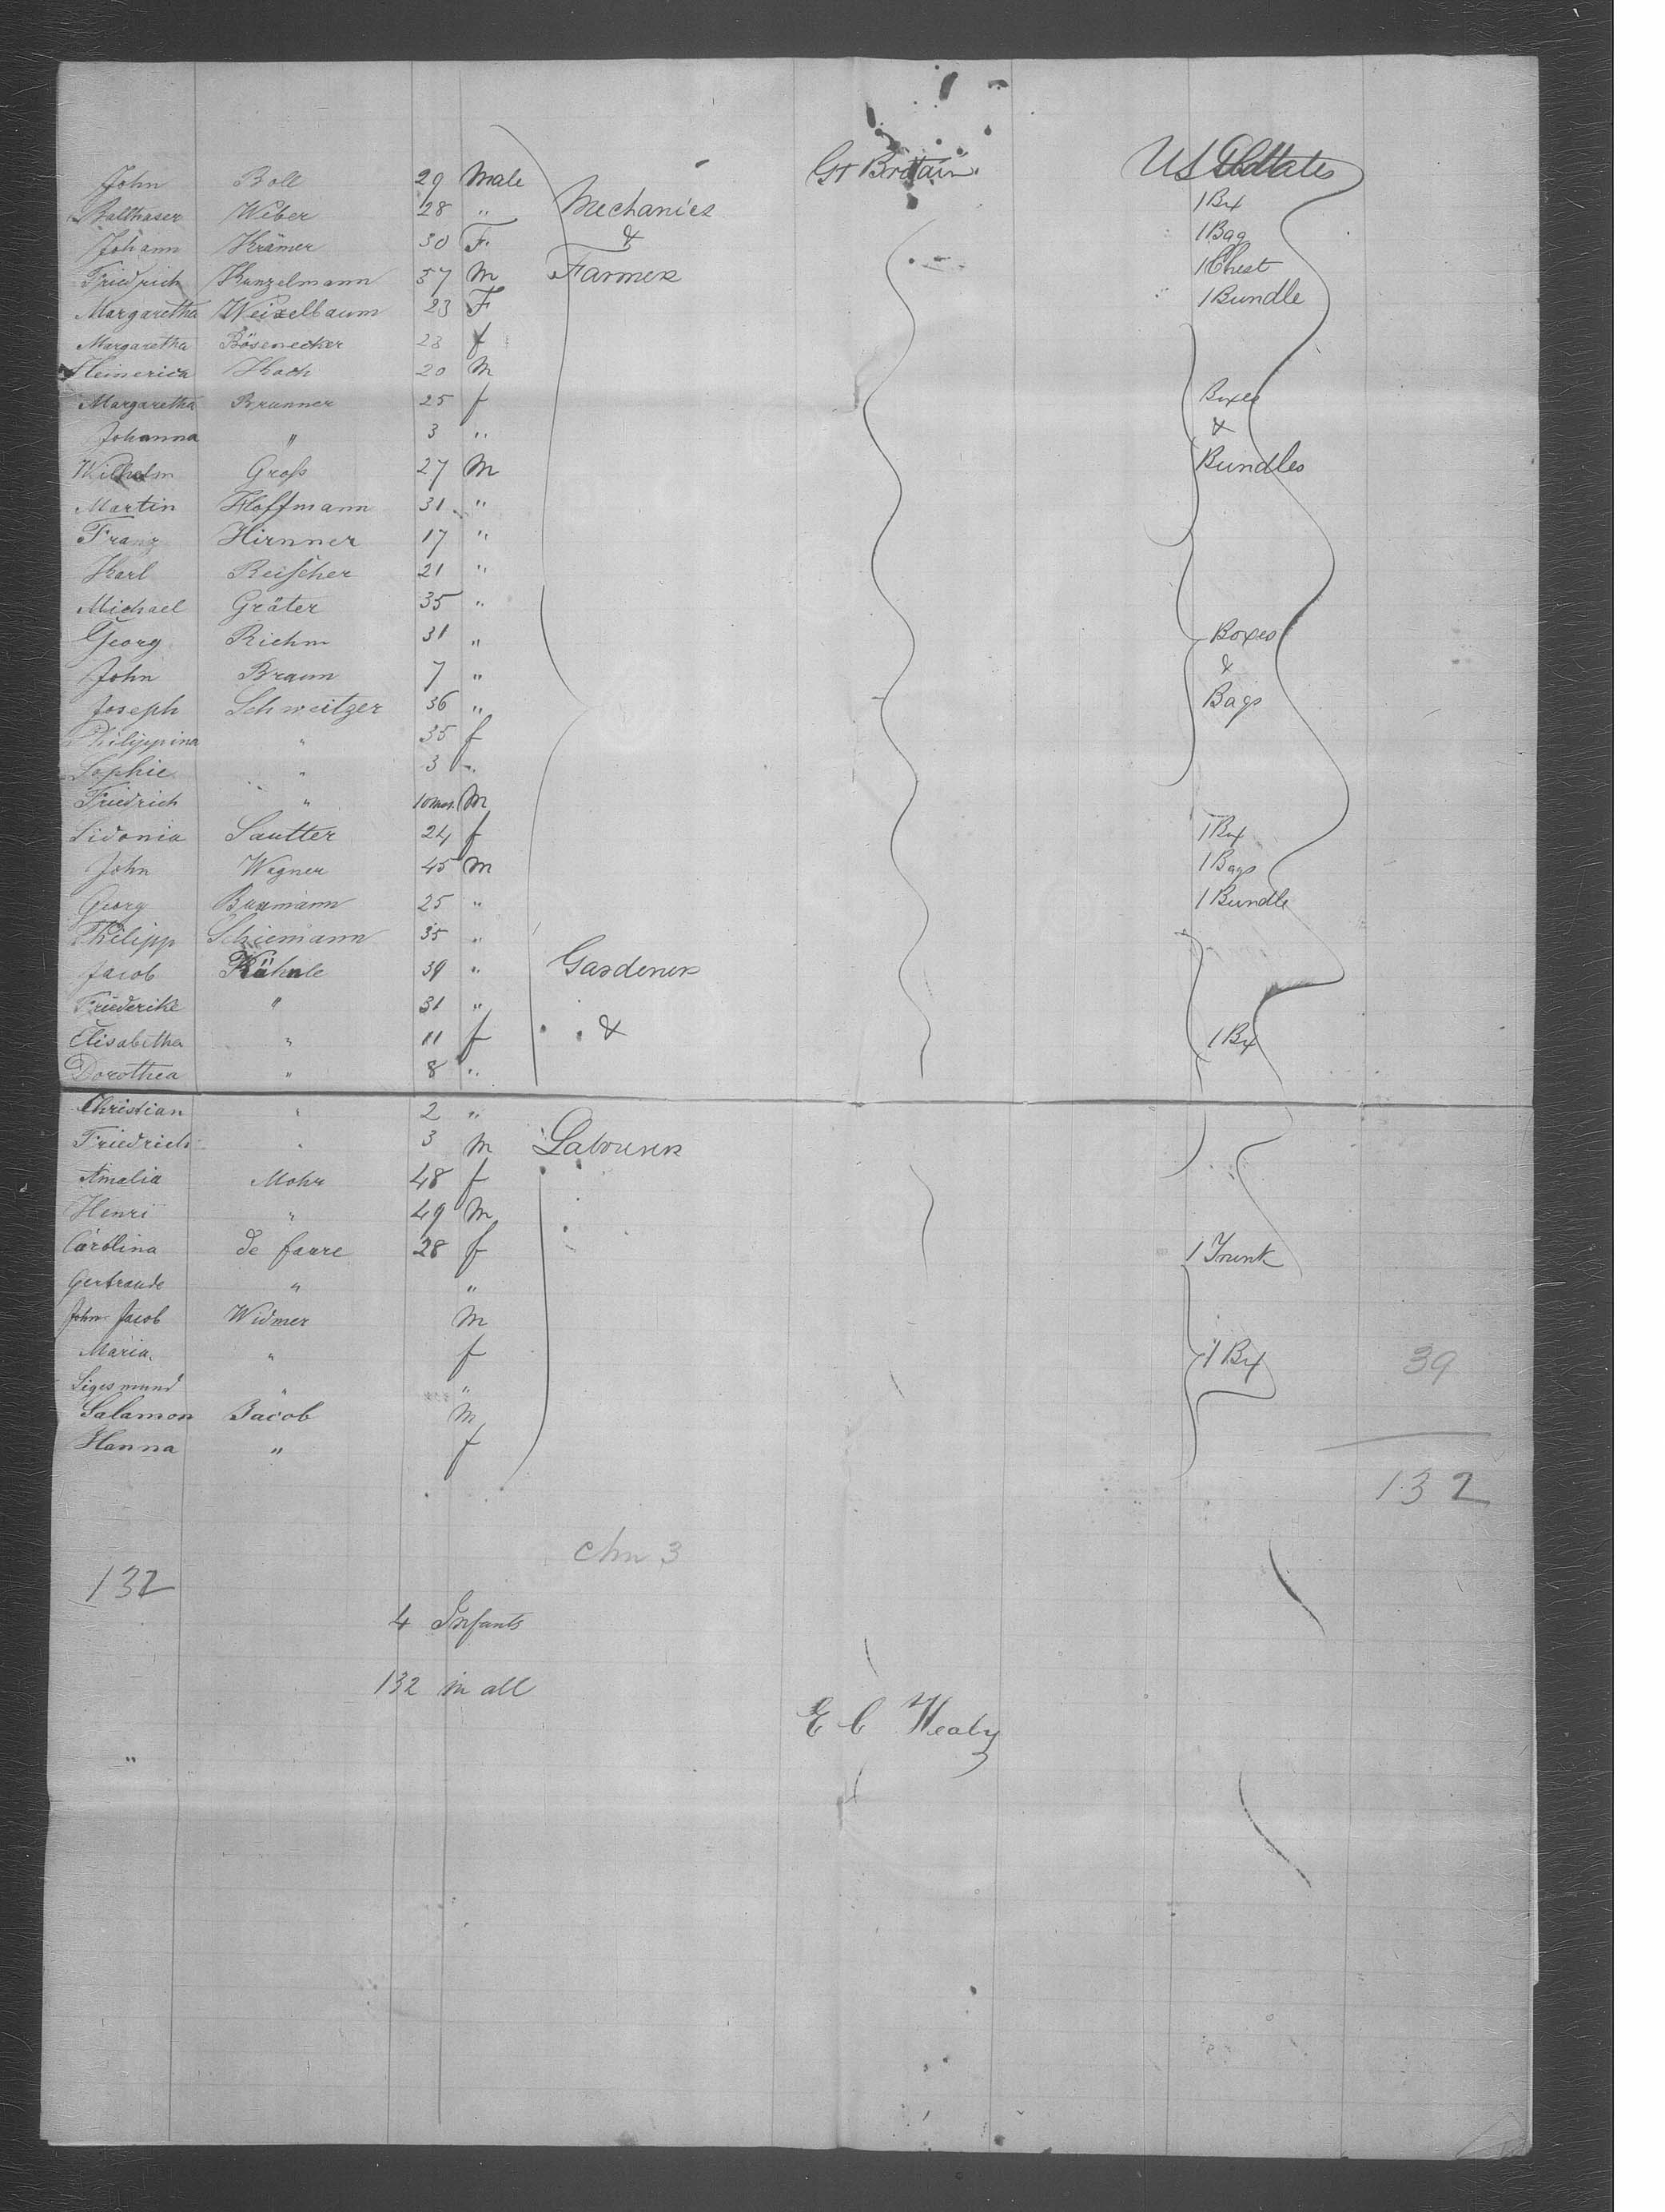 John Boll 29 Male Gt Brittain US States
Balthaser Weber 28 " Mechanics 1 Bx
Johann Krämer 30 F. & 1 Bag
Friedrich Kunzelmann 37 M Farmers 1 Chest
Margaretha Weixelbaum 23 F 1 Bundle
Margaretha Bösenecker 23 f
Heinerica Koch 20 M
Margaretha Brunner 25 f Boxes
Johanna " 3 " &
Wilhelm Groß 27 M Bundles
Martin Hoffmann 31 "
Franz Hirnner 17 "
Karl Reischer 21 "
Michael Gräter 35 "
Georg Richm 31 " Boxes
John Braun 7 " &
Joseph Schweitzer 36 " Bags
Philippina " 35 f
Sophie " 3 "
Friedrich " 10 mos. M
Sidonia Sautter 24 f 1 Bx
John Wagner 45 M 1 Bags
Georg Baumann 25 " 1 Bundle
Philipp Schiemann 35 "
Jacob Kähnle 39 " Gardeners
Friederike " 31 "
Elisabetha " 11 f & 1 Bx
Dorothea " 8 "
Christian " 2 "
Friedrich " 3 M Labourers
Amalia Mohr 48 f
Henri " 49 M
Carolina de faure 28 f 1 Trunk
Gertraude " "
John Jacob Widmer M
Maria " f 1 Bx 39
Sigesmund " "
Salamon Jacob M
Hanna " f
132
chn 3
132
4 Infants
132 in all
E C Healy
"